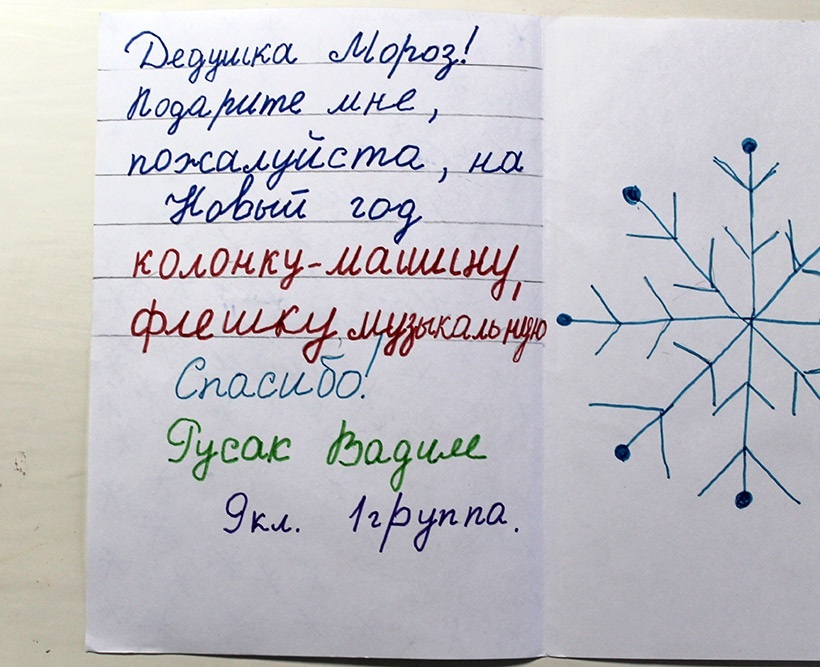 Дедушка Мороз!
Подарите мне,
пожалуйста, на
Новый год
колонку-машину,
флешку музыкальную
Спасибо!
Гусак Вадим
9кл. 1группа.